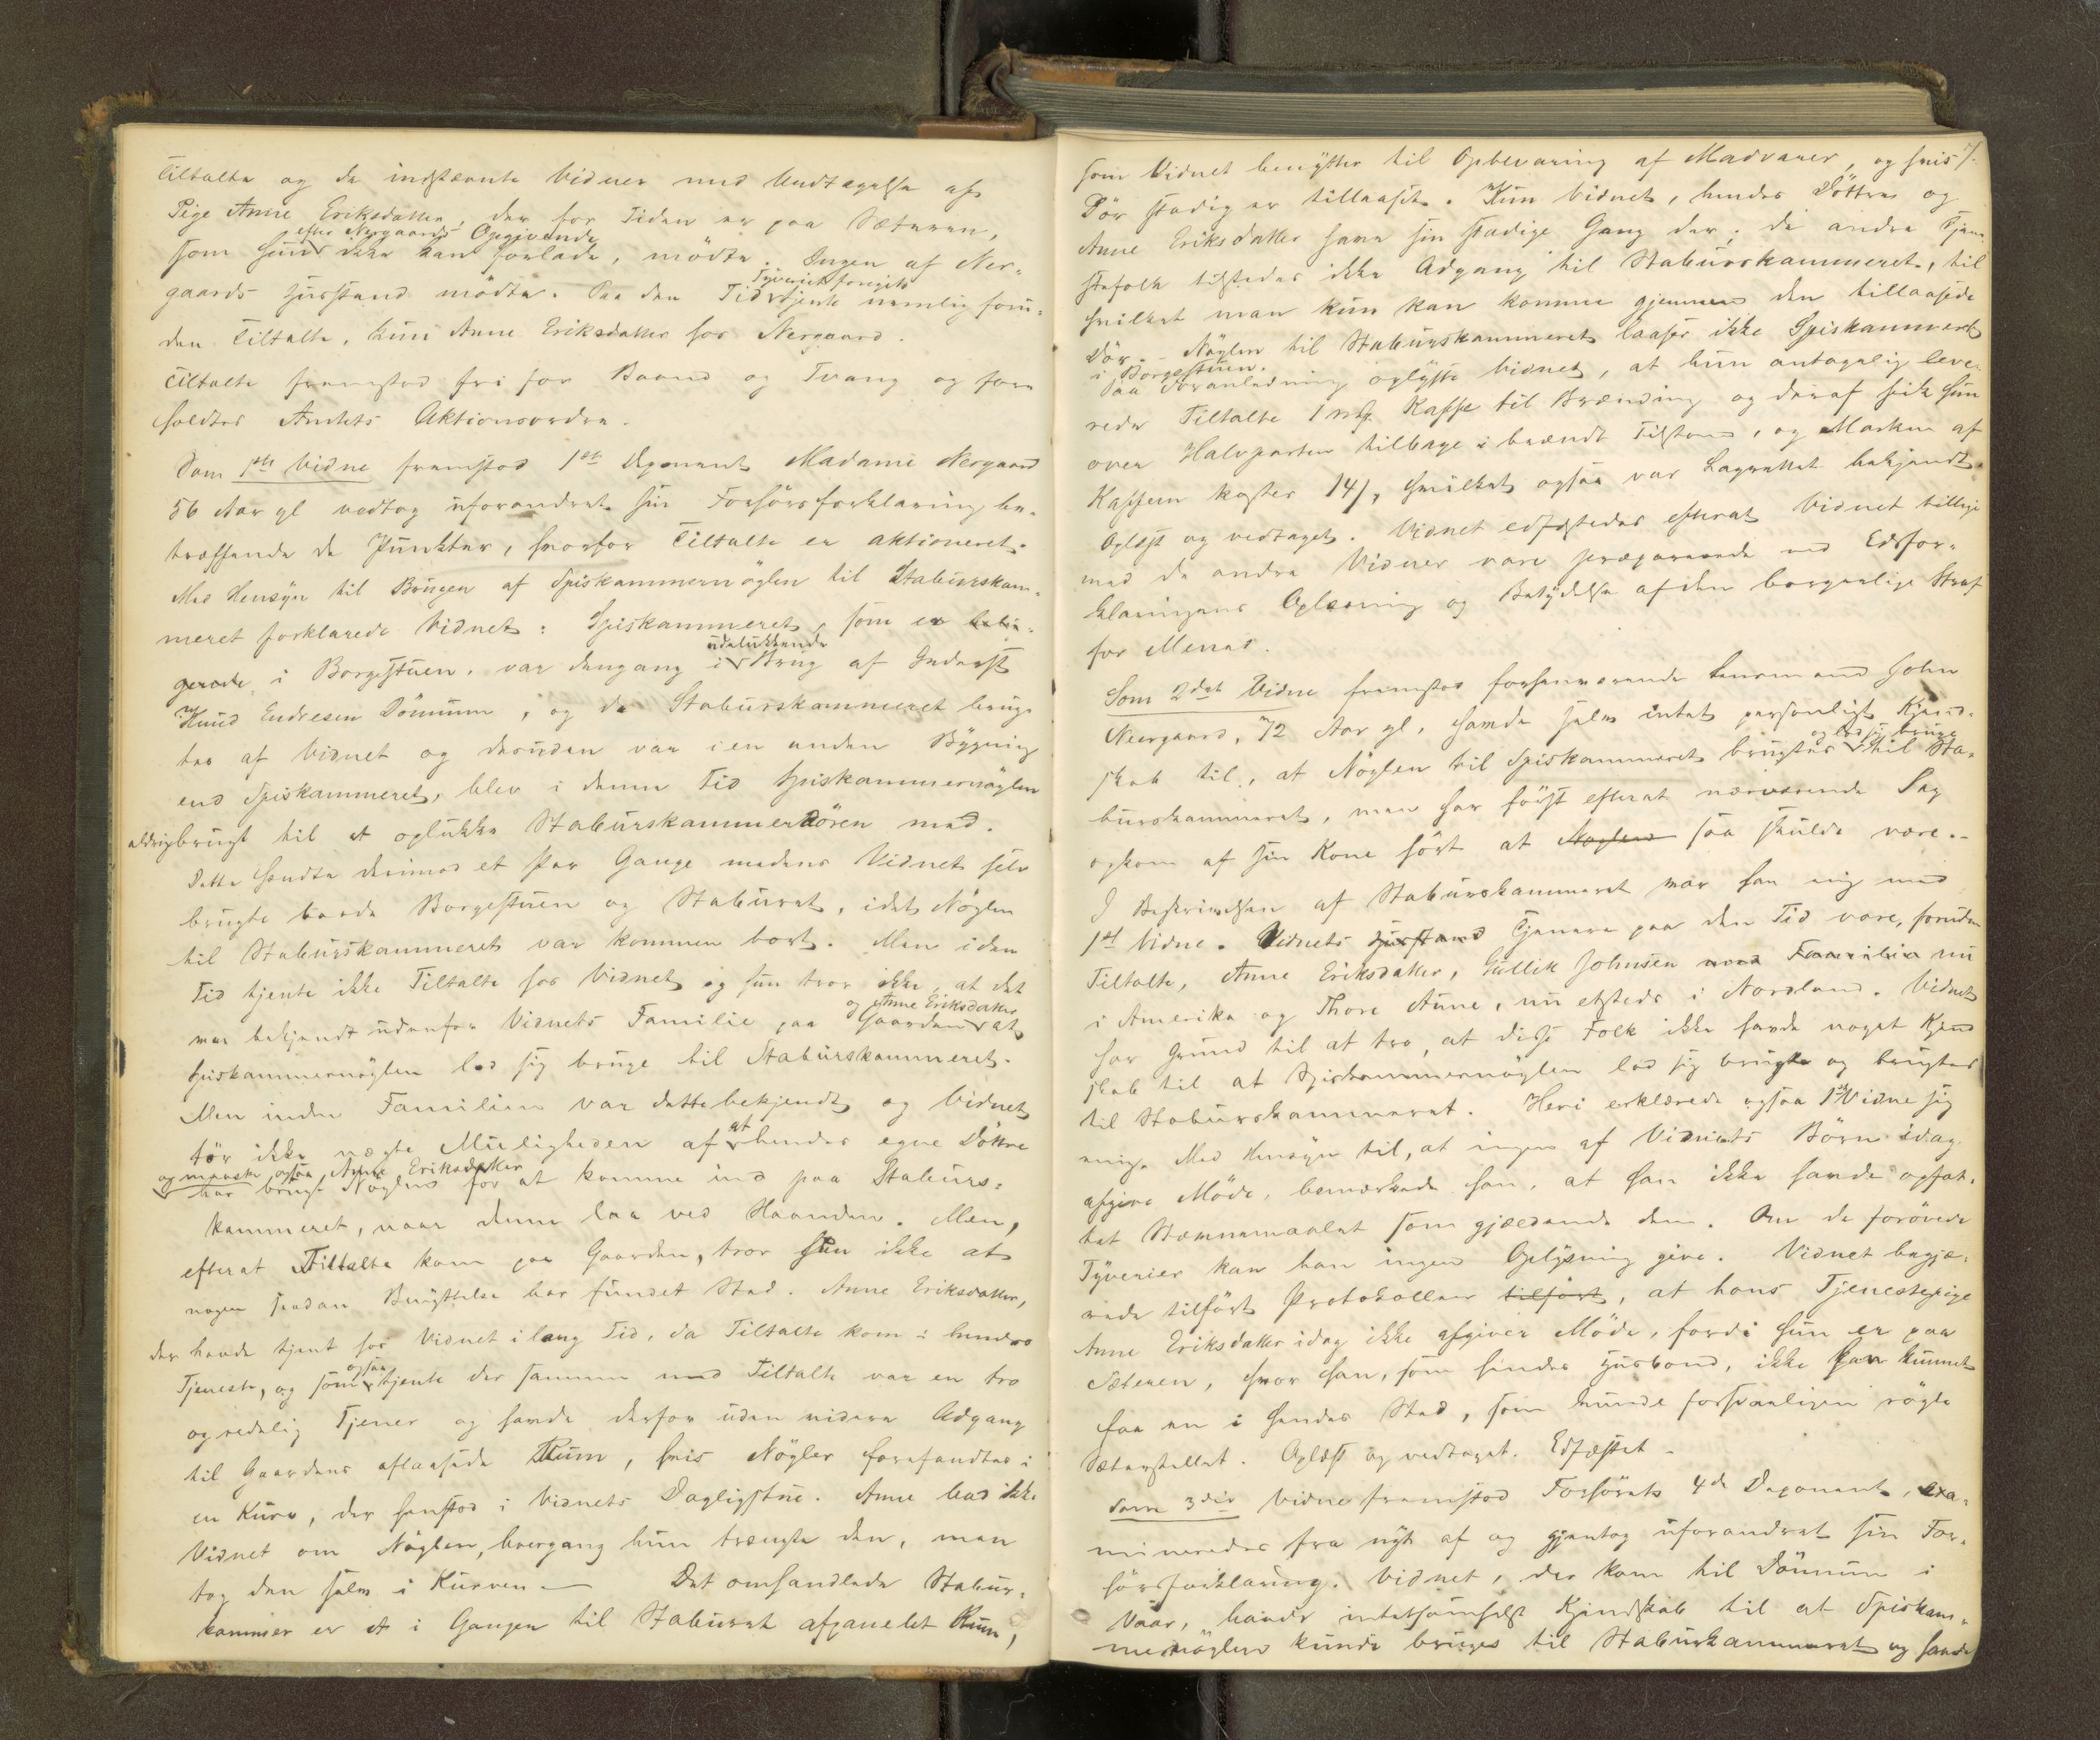 Tiltalte og de indstævnte Vidner med Undtagelse af
Pige Anne Eriksdatter, der for Tiden er paa Sæteren,
som hun efter Nergaards Opgivende ikke kan forlade, mödte. Ingen af Ner-
gaards Husstand mödte. Paa den Tid Tyveriet foregik tjente nemlig foru-
den Tiltalte, kun Anne Eriksdatter hos Nergaard.
Tiltalte fremstod fri for Baand og Tvang og fore
holdtes Amtets Aktionsordre.
Som 1ste Vidne fremstod 1ste Deponent Madame Nergaard
56 Aar gl vedtog uforandret sin Forhörsforklaring be-
træffende de Punkter, hvorfor Tiltalte er aktioneret.
Med Hensyn til Brugen af Spiskammernöglen til Staburskam-
meret forklarede Vidnet: Spiskammeret, som er bele-
gende i Borgestuen, var dengang i udelukkende Brug af Inderst
Knud Endresen Dömum, og da Staburskammeret brug-
tes af Vidnet og desuden var i en anden Bygning
end Spiskammeret, blev i denne Tid Spiskammernöglen
aldrig brugt til at oplukke Staburskammerdören med.
Dette hændte derimod et Par Gange medens Vidnet selv
brugte baade Borgestuen og Staburet, idet Nöglen
til Staburskammeret var kommen bort. Men i den
Tid tjente ikke Tiltalte hos Vidnet og hun tror ikke, at det
var bekjendt udenfor Vidnets Familie paa Gaarden og Anne Eriksdatter at
Spiskammernöglen lod sig bruge til Staburskammeret.
Men inden Familien var dette bekjendt og Vidnet
tör ikke nægte Muligheden af at hendes egne Döttre
og maaske ogsaa Anne Eriksdatter
har brugt Nöglen for at komme ind paa Staburs-
kammeret, naar denne laa ved Haanden. Men,
efterat Tiltalte kom paa Gaarden, tror hun ikke at
nogen saadan Benyttelse har fundet Sted. Anne Eriksdatter,
der havde tjent hos Vidnet i lang Tid, da Tiltalte kom i hendes
Tjeneste, og som ogsaa tjente der sammen med Tiltalte var en tro
og redelig Tjener og havde derfor uden videre Adgang
til Gaardens aflaasede Rum, hvis Nögler forefandtes i
en Kurv, der henstod i Vidnets Dagligstue. Anne bad ikke
Vidnet om Nöglen, hvergang hun trængte den, men
tog den selv i Kurven. — Det omhandlede Stabur-
kammer er et i Gangen til Staburet afpanelet Rum,
som Vidnet benytter til Opbevaring af Madvarer, og hvis
Dör stadig er tillaaset. Kun Vidnet, hendes Döttre og
Anne Eriksdatter have sin stadige Gang der; de andre Tjene-
stefolk tilstedes ikke Adgang til Staburskammeret, til
hvilket man kun kan komme gjennem den tillaasede
Dör. – Nöglen til Staburskammeret laaser ikke Spiskammeret
i Borgestuen.
Paa Foranledning oplyste Vidnet, at hun antagelig leve-
rede Tiltalte 1 mk. Kaffe til Brænding og deraf fik hun
over Halvparten tilbage i brændt Tilstand, og Marken af
Kaffeen koster 14 s, hvilket ogsaa var Lagrettet bekjendt.
Oplæst og vedtaget. Vidnet edfæstedes efterat Vidnet tillige
med de andre Vidner vare præparerede ved Edsfor-
klaringens Oplæsning og Betydelse af den borgerlige Straf
for Meened.
Som 2det Vidne fremstod forhenværende Lensmand John
Neergaard, 72 Aar gl, havde selv intet personligt Kjend-
skab til, at Nöglen til Spiskammeret brugtes og lod sig bruge til Sta-
burskammeret, men har först efterat nærværende Sag
opkom af sin Kone hört at Nöglen saa skulde være. –
I Beskrivelsen af Staburskammeret var han enig med
1st Vidne. Vidnets Husstand Tjenere paa den Tid vare, foruden
Tiltalte, Anne Eriksdatter, Gullik Johnsen med Familie nu
i Amerika og Thore Aune, nu etsteds i Nordland. Vidnet
har Grund til at tro, at disse Folk ikke havde noget Kjend
skab til at Spiskammernöglen lod sig bruge og brugtes
til Staburskammeret. Heri erklærede ogsaa 1ste Vidne sig
enige. Med Hensyn til, at ingen af Vidnets Börn idag
afgive Möde, bemærkede han, at han ikke havde opfat-
tet Stævnemaalet som gjældende dem. Om de forövede
Tyverier kan han ingen Oplysning give. Vidnet begjæ-
rede tilfört Protokollen tilfört, at hans Tjenestepige
Anne Eriksdatter idag ikke afgiver Möde, fordi hun er paa
Sæteren, hvor han, som hendes Husbond, ikke har kunnet
faa en i hendes Sted, som kunde forsvarligen rögte
Sæterstellet. Oplæst og vedtaget. Edfæstet –
Som 3die Vidne fremstod Forhörets 4de Deponent, exa-
mineredes fra nyt af og gjentog uforandret sin For-
hörsforklaring. Vidnet, der kom til Dömum i
Vaar, havde intetsomhelst Kjendskab til at Spiskam-
mernöglen kunde bruges til Staburskammeret og havde